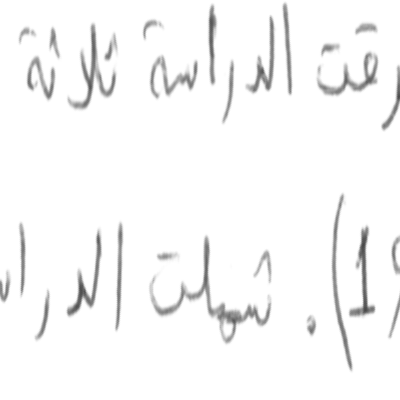 رقت الدراسة ثلاثة
1). شملت الدرا